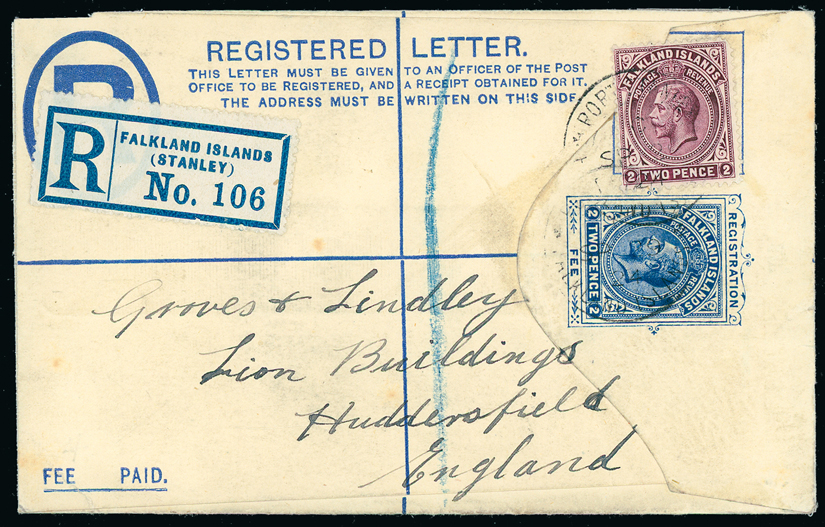 REGISTERED LETTER.
THIS LETTER MUST BE GIVEN TO AN OFFICER OF THE POST
OFFICE TO BE REGISTERED, AND A RECEIPT OBTAINED FOR IT.
THE ADDRESS MUST BE WRITTEN ON THIS SIDE
R
R
FALKLAND ISLANDS
(STANLEY)
No. 106
FALKLAND ISLANDS
POSTAGE REVENUE
2 TWO PENCE 2
PORT
REGISTRATION
FEE
FALKLAND ISLANDS
POSTAGE REVENUE
2 TWO PENCE 2
Groves & Lindley
Lion Buildings
Huddersfield
England
FEE PAID.